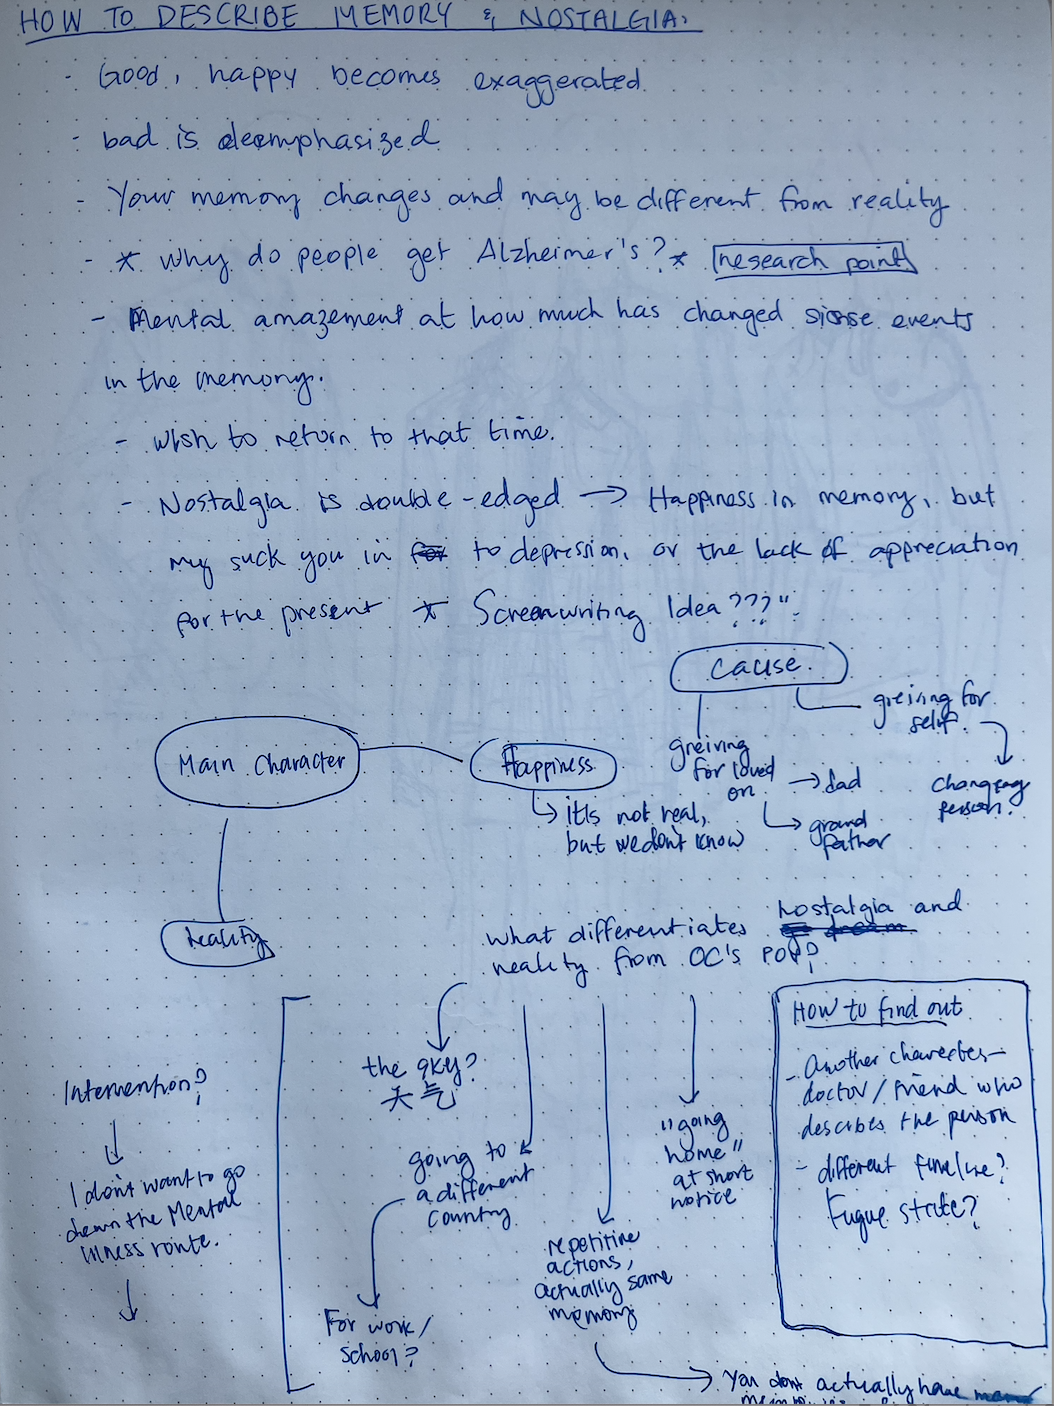 HOW TO DESCRIBE MEMORY & NOSTALGIA:
- Good, happy becomes exaggerated
- bad is deemphasized
- Your memory changes and may be different from reality
- * Why do people get Alzheimer's? * research point
- Mental amazement at how much has changed since events
in the memory.
- wish to return to that time.
- Nostalgia is double-edged → Happiness in memory, but
may suck you in to depression, or the lack of appreciation
for the present * Screenwriting Idea???"
cause.
greiving for
self.
changing
person?
greiving
for loved
on
→ dad
grand
father
Main Character
Happiness
it's not real,
but we don't know
reality
what differentiates nostalgia and
reality from OC's POV?
the sky?
天气
going to
a different
country
For work/
school?
repetitive
actions,
actually same
memory
You don't actually have
"going
home"
at short
notice
Intervention?
I don't want to go
down the Mental
illness route.
How to find out
- Another character-
doctor/friend who
describes the person
- different timeline?
Fugue state?